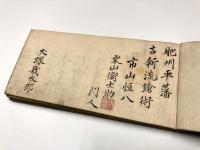 肥州平藩
古新流鎗術
市山恒八
栗山衛士助
門人
大堀我太郎